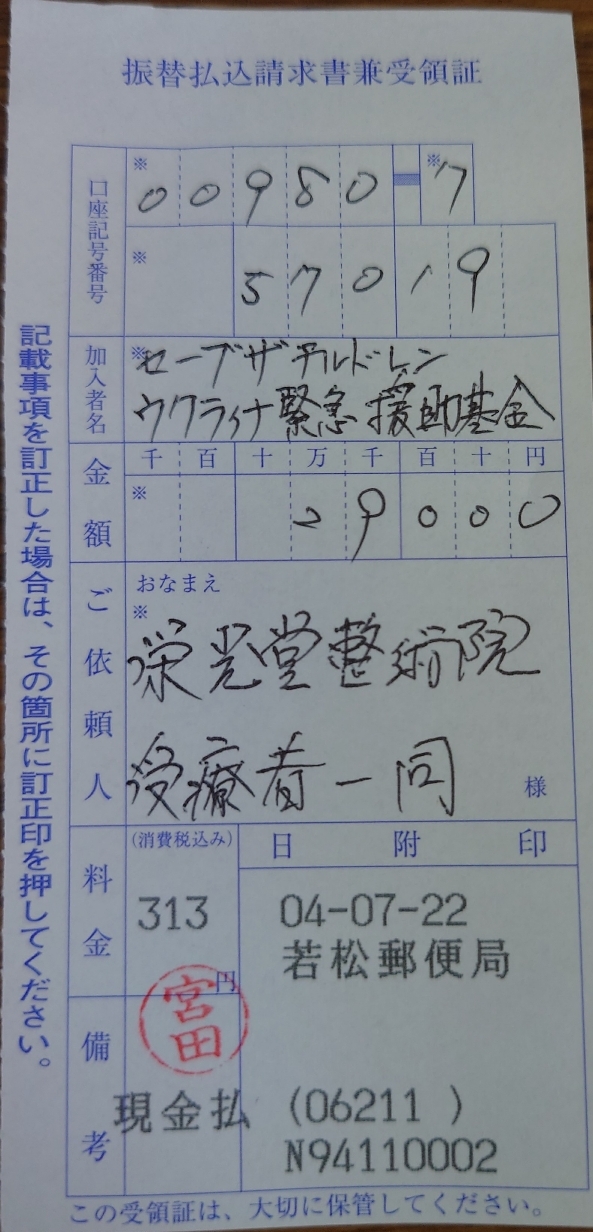 振替払込請求書兼受領証
口座記号番号
※ 0 0 9 8 0 - ※ 7
※ 5 7 0 1 9
加入者名
※ セーブザチルドレン
ウクライナ緊急援助基金
金額
千 百 十 万 千 百 十 円
※ 2 9 0 0 0
ご依頼人
おなまえ
※
栄光堂整術院
受療者一同
様
料金
(消費税込み)
313
円
日附印
04-07-22
若松郵便局
宮田
備考
現金払 (06211 )
N94110002
この受領証は、大切に保管してください。
記載事項を訂正した場合は、その箇所に訂正印を押してください。